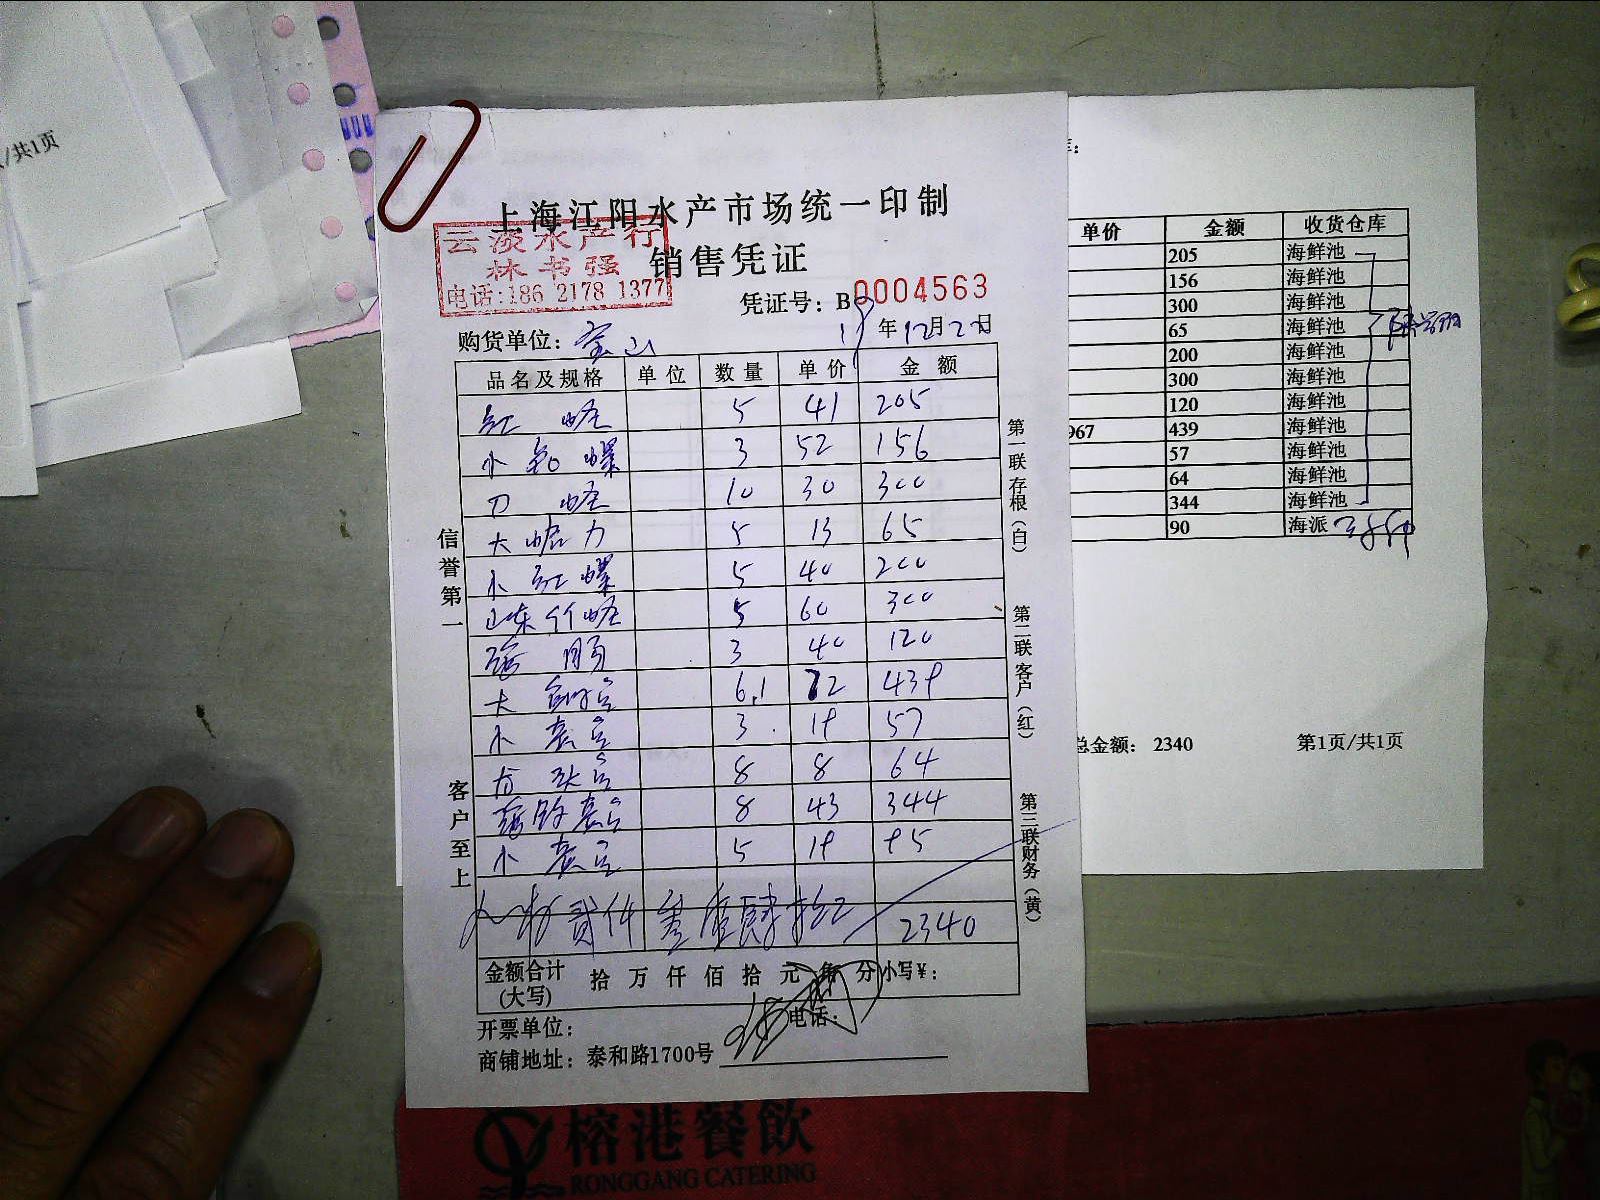 /共1页
上海江阳水产市场统一印制
云淡水产行
林书强
电话:186 2178 1377
销售凭证
凭证号：B 0004563
购货单位：宝山
19 年12月22日
品名及规格 单位 数量 单价 金额
红 蛏 5 41 205
小 螺 3 52 156
刀 蛏 10 30 300
大 蛤力 5 13 65
小红螺 5 40 200
山东竹蛏 5 60 300
3 40 120
大 6.1 72 439
小 3 19 57
8 8 64
8 43 344
小 5 19 95
贰仟叁佰肆拾 2340
金额合计
(大写)
拾 万 仟 佰 拾 元 角 分 小写￥：
开票单位：
电话：
商铺地址：泰和路1700号
信誉第一
客户至上
第一联存根(白)
第二联客户(红)
第三联财务(黄)
单价 金额 收货仓库
205 海鲜池
156 海鲜池
300 海鲜池
65 海鲜池
200 海鲜池
300 海鲜池
120 海鲜池
967 439 海鲜池
57 海鲜池
64 海鲜池
344 海鲜池
90 海派
总金额： 2340
第1页/共1页
榕港餐飲
RONGGANG CATERING